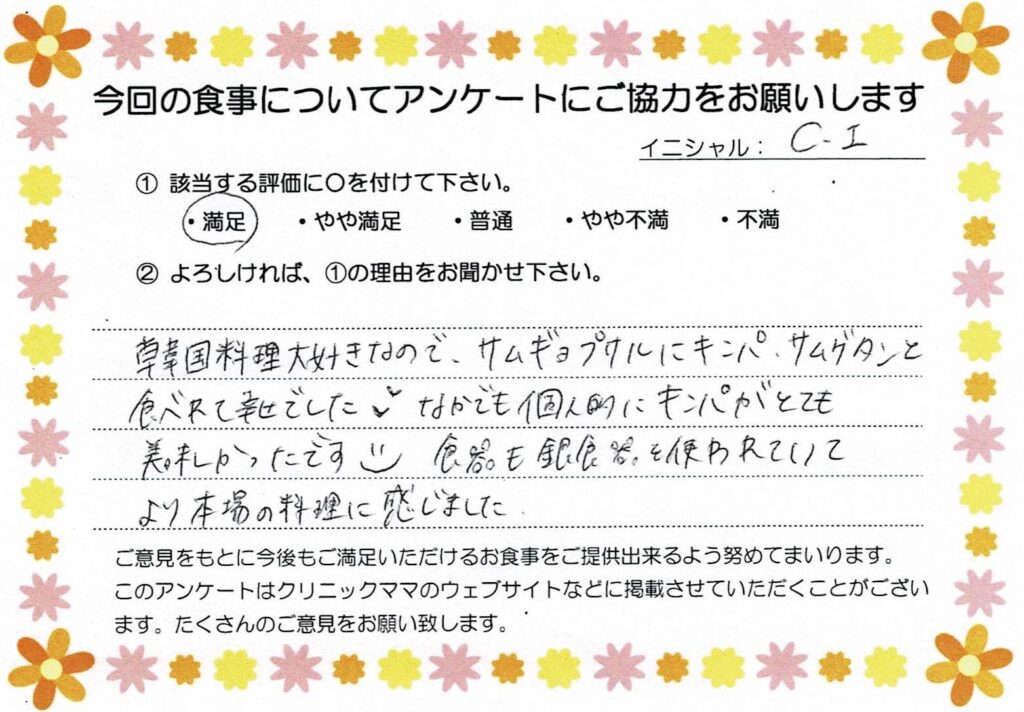 今回の食事についてアンケートにご協力をお願いします
イニシャル： C-I
① 該当する評価に〇を付けて下さい。
・満足 ・やや満足 ・普通 ・やや不満 ・不満
② よろしければ、①の理由をお聞かせ下さい。
韓国料理大好きなので、サムギョプサルにキンパ、サムゲタンと
食べれて幸せでした なかでも個人的にキンパがとても
美味しかったです 食器も銀食器を使われていて
より本場の料理に感じました.
ご意見をもとに今後もご満足いただけるお食事をご提供出来るよう努めてまいります。
このアンケートはクリニックママのウェブサイトなどに掲載させていただくことがござい
ます。たくさんのご意見をお願い致します。